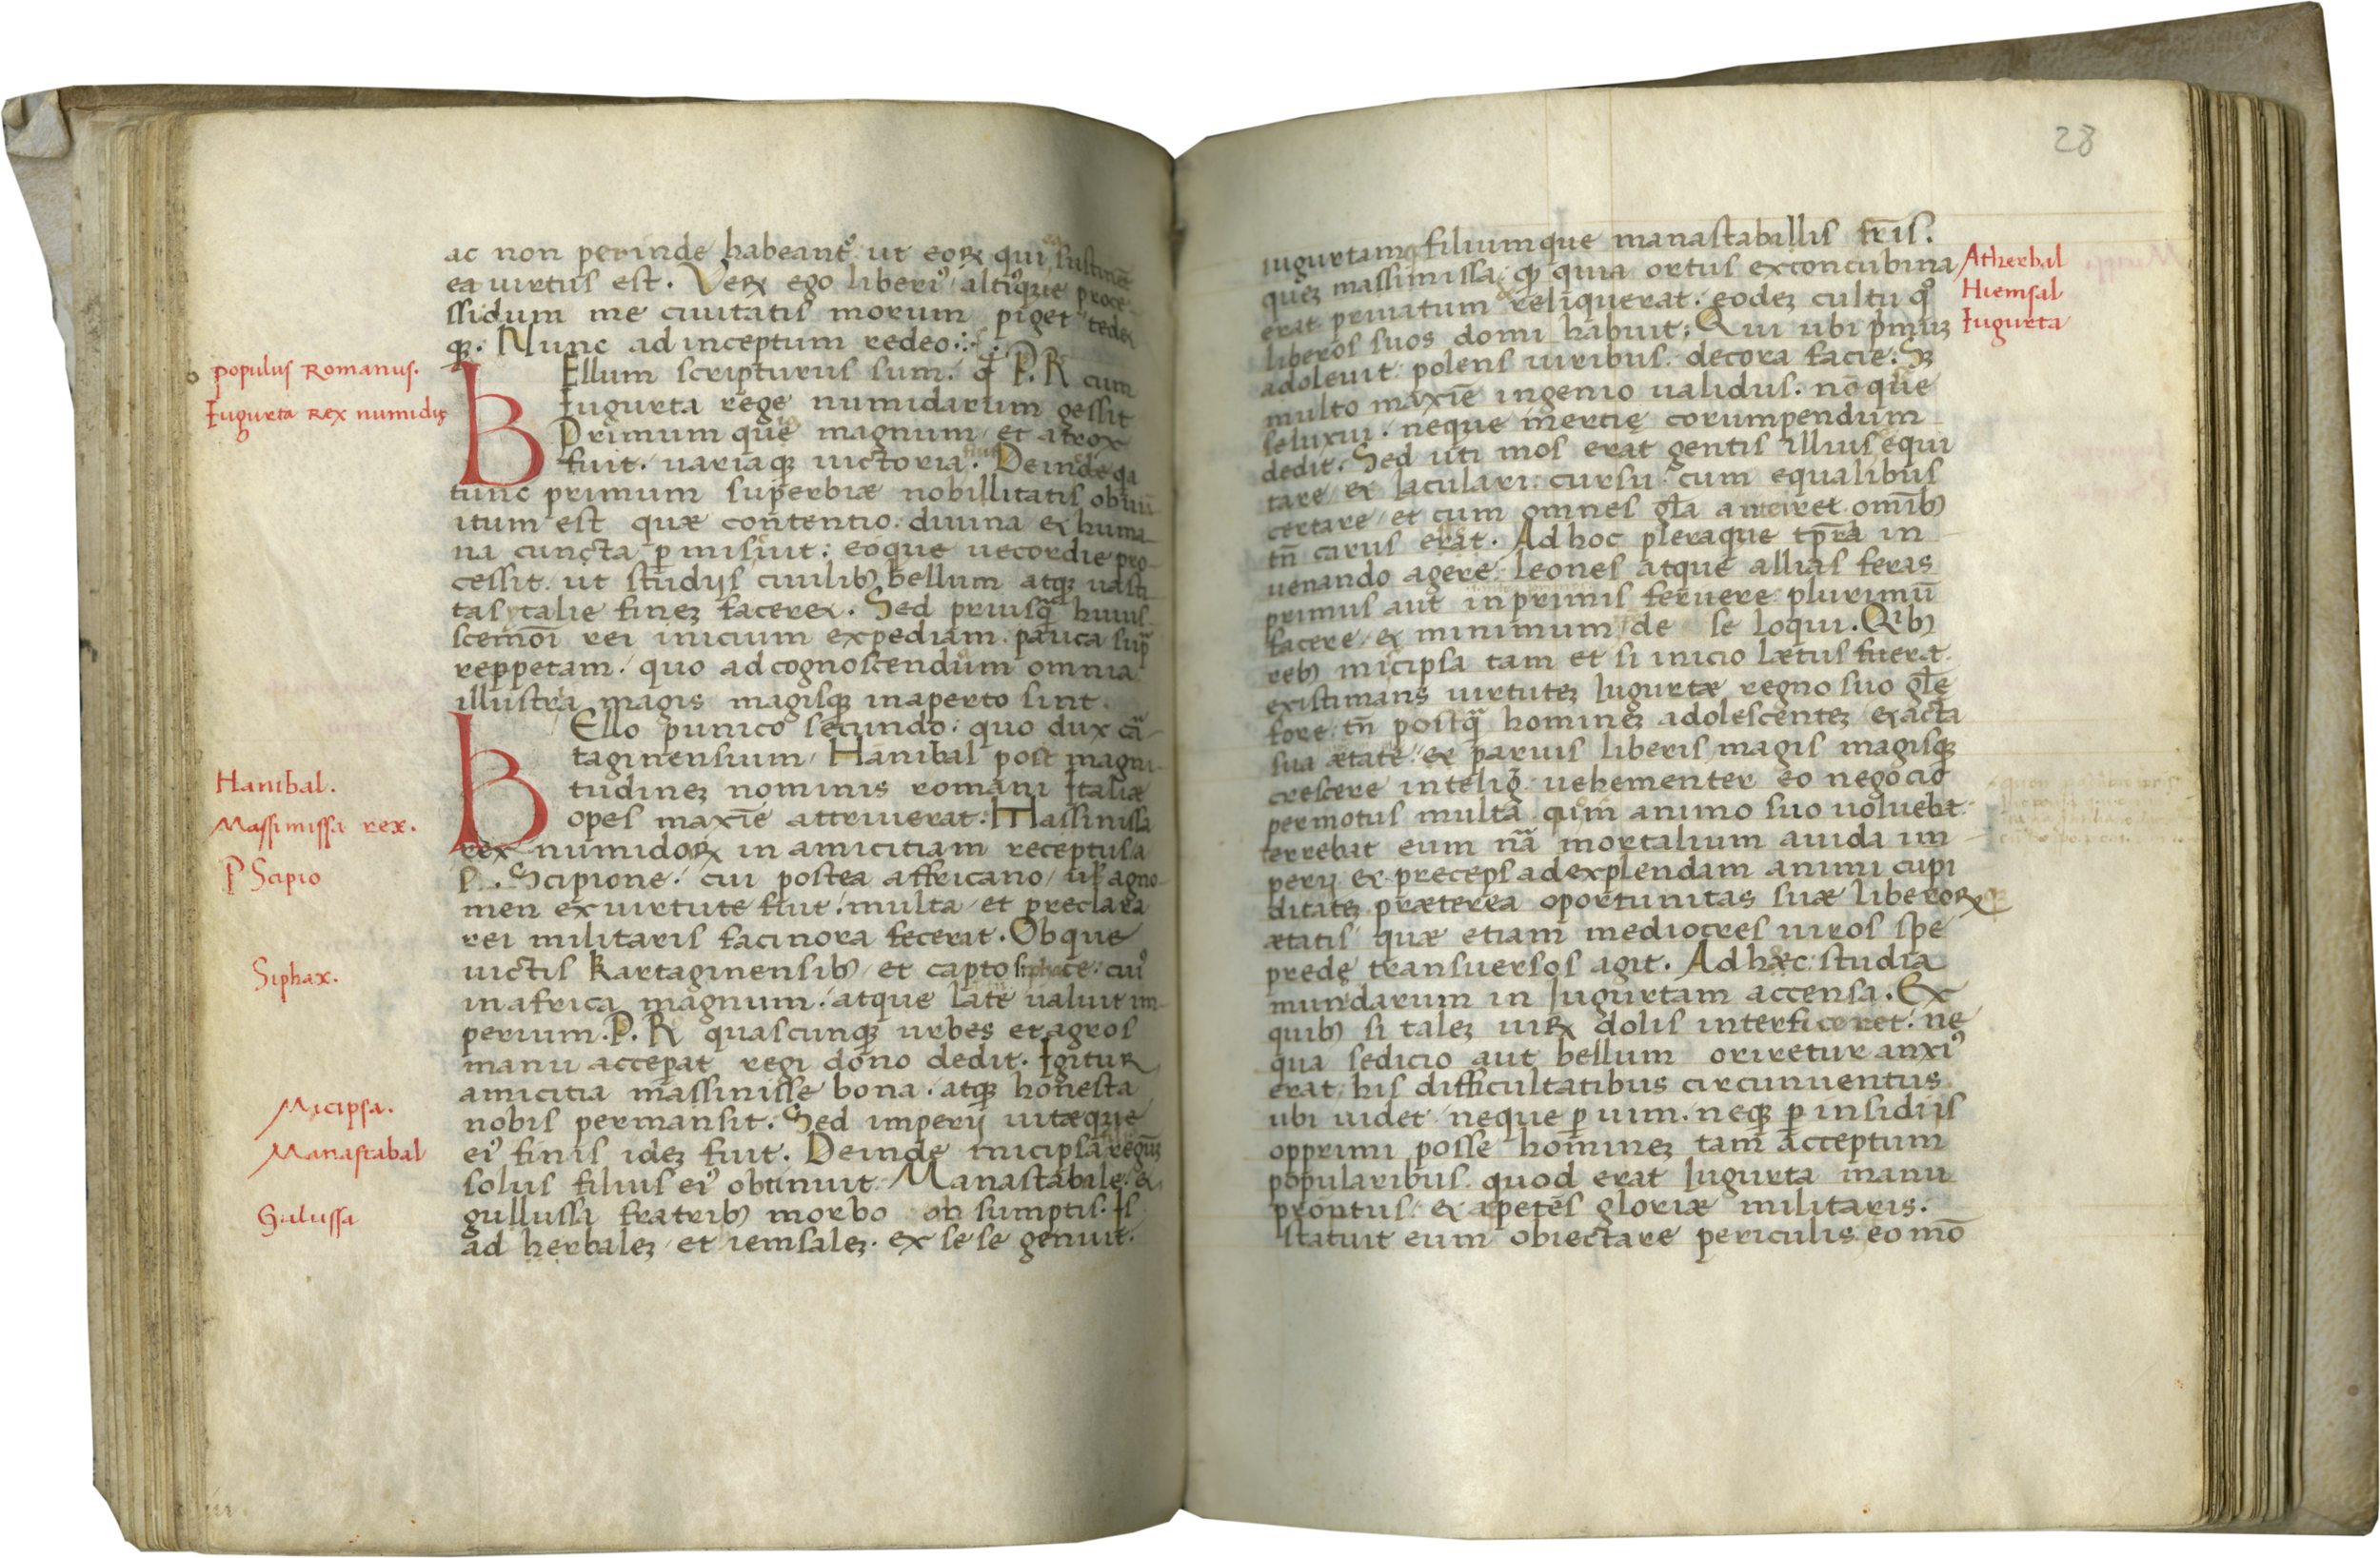 ac non perinde habeant᷒ ut eoꝝ qui ea sustinēt
ea uirtus est. Veꝝ ego liberi᷒ alti᷒que proce-
ssidum me ciuitatis morum piget tedet
qꝫ. Nunc ad inceptum redeo
populus Romanus.
Iugurta rex numidię
BEllum scripturus sum. qđ P. R cum
Iugurta rege numidarum gessit
Primum que magnum et atrox
fuit. uariaqꝫ uictoria fuit. Deinde qa
tunc primum superbiæ nobillitatis obuiū
itum est quæ contentio. diuina et huma-
na cuncta ꝑmisiut: eoque uecordie pro-
cessit. ut studijs ciuilibꝫ bellum atqꝫ uasti
tas italie fineꝫ faceret. Sed priusꝗ̃ huius-
scemōi rei inicium expediam. pauca sup̃
reppetam. quo ad cognoscendum omnia
illustra magis magisqꝫ in aperto sint.
BEllo punico secundo: quo dux cā-
taginensium Hanibal post magni-
tudineꝫ nominis romani Italiæ
opes maxīe attriuerat: Massinissa
rex numidoꝝ in amicitiam receptus a
P. Scipione. cui postea affricano agno-
men ex uirtute fuit: multa et preclara
rei militaris facinora fecerat. Ob que
uictis kartaginensibꝫ et capto siphace: cui᷒
in africa magnum atque late ualuit im-
perium. P. R quascunqꝫ urbes et agros
manu acceꝑat regi dono dedit. Igitur
amicitia massinisse bona atqꝫ honesta
nobis permansit. Sed imperij uitæque
ei᷒ finis ideꝫ fuit. Deinde micipsa regnūꝫ
solus filius ei᷒ obtinuit. Manastabile et
gullussa fratribꝫ morbo ab sumptis. Is
ad herbaleꝫ et iemsaleꝫ ex se se genuit.
Hanibal.
Massimissa rex.
P Scipio
Siphax.
Micipsa.
Manastabal
Gulussa
28
iugurtamq filiumque manastabillis fr̄is.
queꝫ massimissa: qꝫ quia ortus ex concubina
erat priuatum reliquerat. eodeꝫ cultu q᷒
liberos suos domi habuit: Qui ubi p̄muꝫ
adoleuit: polens uiribus. decora facie: Sꝫ
multo maxīe ingenio ualidus. nō que
se luxui. neque inercię corumpendum
dedit. Sed uti mos erat gentis illius equi
tare et Iaculari: cursu cum equalibus
certare et cum omnes gl̄a anteiret omībꝫ
tn̄ carus erat. Ad hoc pleraque tp̄ra in
uenando agere: Leones atque allias feras
primus aut in primis feruere: plurimū
facere et minimum de se loqui. Qⁱbꝫ
rebꝫ micipsa tam et si inicio lætus fuerat.
existimans uirtuteꝫ Iugurtæ regno suo gl̄e
fore: tn̄ postꝗ̃ homineꝫ adolescenteꝫ exacta
sua ætate et paruis liberis magis magisqꝫ
crescere inteligͥ: uehementer eo negocio
permotus multa cum animo suo uoluebat.
terrebat eum nā mortalium auida im
perij et preceps ad explendam animi cupi
ditateꝫ præterea oportunitas suæ liberoꝝ
ætatis quæ etiam mediocres uiros spe
predę transuersos agit. Ad hæc: studia
numdarum in Iugurtam accensa. Ex
quibꝫ si taleꝫ uiꝝ dolis interficeret: ne
qua sedicio aut bellum oriretur anxi᷒
erat his difficultatibus circunuentus
ubi uidet neque ꝑ uim. neqꝫ ꝑ insidiis
opprimi posse homineꝫ tam acceptum
popularibus. quod erat Iugurta manu
prontus et apetēs gloriæ militaris.
statuit eum obiectare periculis eo mō
Atherbal
Hiemsal
Iugurta